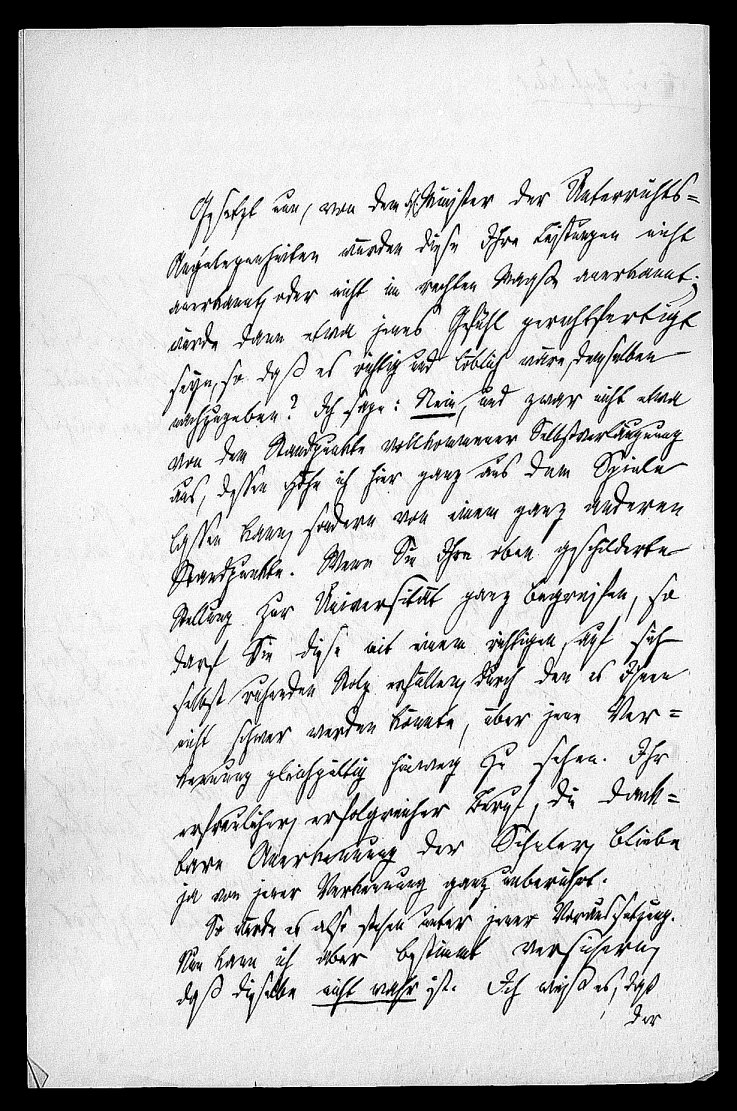 Gesetzt nun, von dem H. Minister der Unterrichts-
Angelegenheiten würden diese Ihre Leistungen nicht
anerkannt, oder nicht im rechten Maaße anerkannt;
würde dann etwa jenes Gefühl gerechtfertigt
seyn, so daß es richtig und löblich wäre, demselben
nachzugeben? Ich sage: Nein, und zwar nicht etwa
von dem Standpunkte vollkommener Selbstverläugnung
aus, dessen Höhe ich hier ganz aus dem Spiele
lassen kann, sondern von einem ganz anderen
Standpunkte. Wenn Sie Ihre oben geschilderte
Stellung zur Universität ganz begreifen, so
darf Sie diese mit einem richtigen, auf sich
selbst ruhenden Stolz erfüllen, durch den es Ihnen
nicht schwer werden könnte, über jene Ver-
kennung gleichgültig hinweg zu sehen. Ihr
erfreulicher, erfolgreicher Beruf, die dank-
bare Anerkennung der Schüler, bliebe
ja von jener Verkennung ganz unberührt.
So würde es also stehen unter jener Voraussetzung.
Nun kann ich aber bestimmt versichern,
daß dieselbe nicht wahr ist. Ich weiß es, daß
der